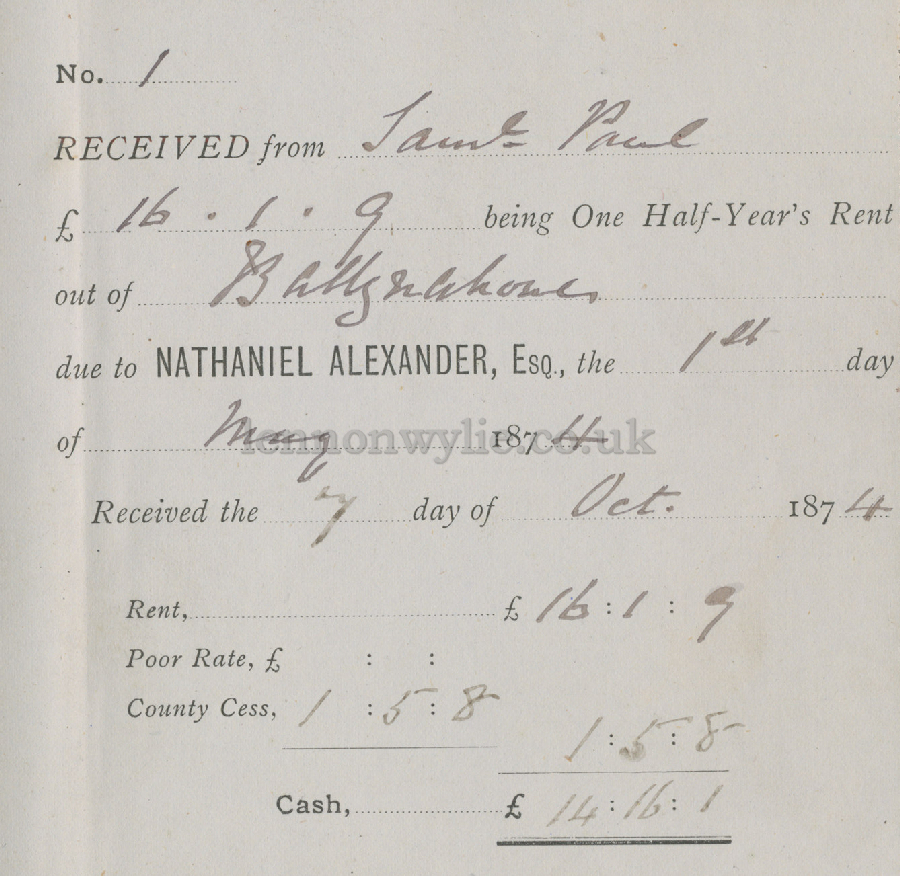 No. 1
RECEIVED from Saml. Paul
£ 16 . 1 . 9 being One Half-Year's Rent
out of Ballynahone
due to NATHANIEL ALEXANDER, Esq., the 1st day
of May 1874
lennonwylie.co.uk
Received the 7 day of Oct. 1874
Rent, £ 16 : 1 : 9
Poor Rate, £ : :
County Cess, 1 : 5 : 8
1 : 5 : 8
Cash, £ 14 : 16 : 1